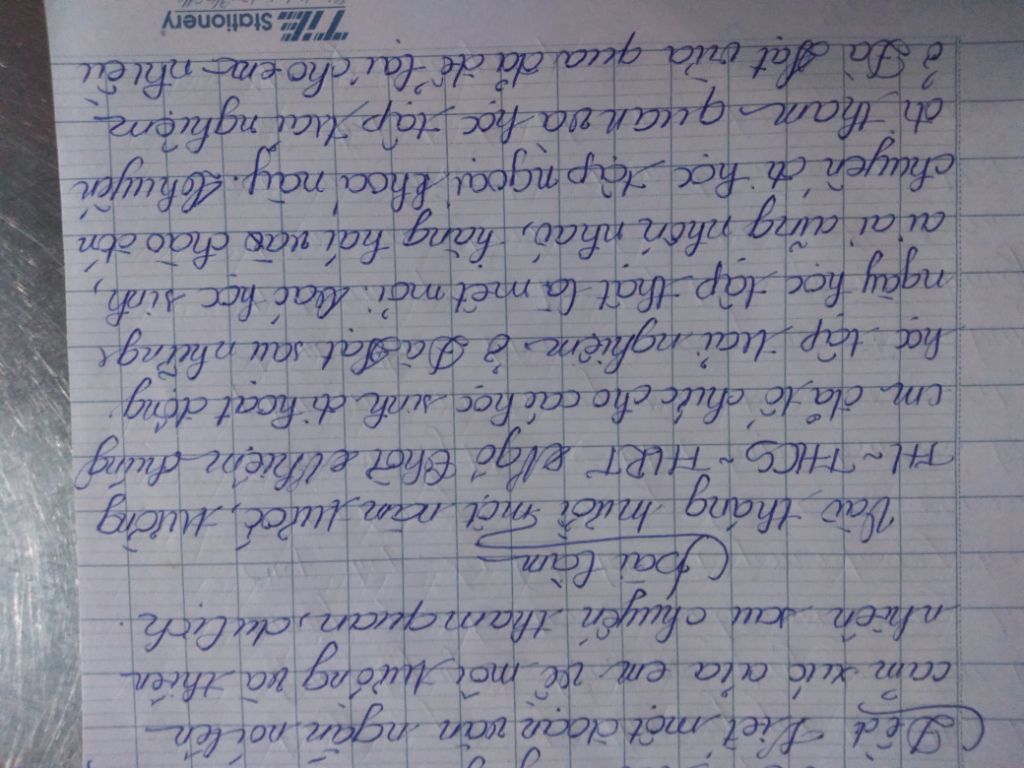 Đề: Viết một đoạn văn ngắn nói lên
cảm xúc của em về môi trường và thiên
nhiên sau chuyến tham quan, du lịch.
Bài làm
Vào tháng mười một năm trước, trường
TH - THCS - THPT Ngô Thời Nhiệm chúng
em đã tổ chức cho các học sinh đi hoạt động
học tập trải nghiệm ở Đà Lạt sau những
ngày học tập thật là mệt mỏi. Các học sinh,
ai ai cũng nhốn nháo, hăng hái vào chào đón
chuyến đi học tập ngoại khóa này. Chuyến
đi tham quan và học tập trải nghiệm
ở Đà Lạt vừa qua đã để lại cho em nhiều
TiTi Stationery